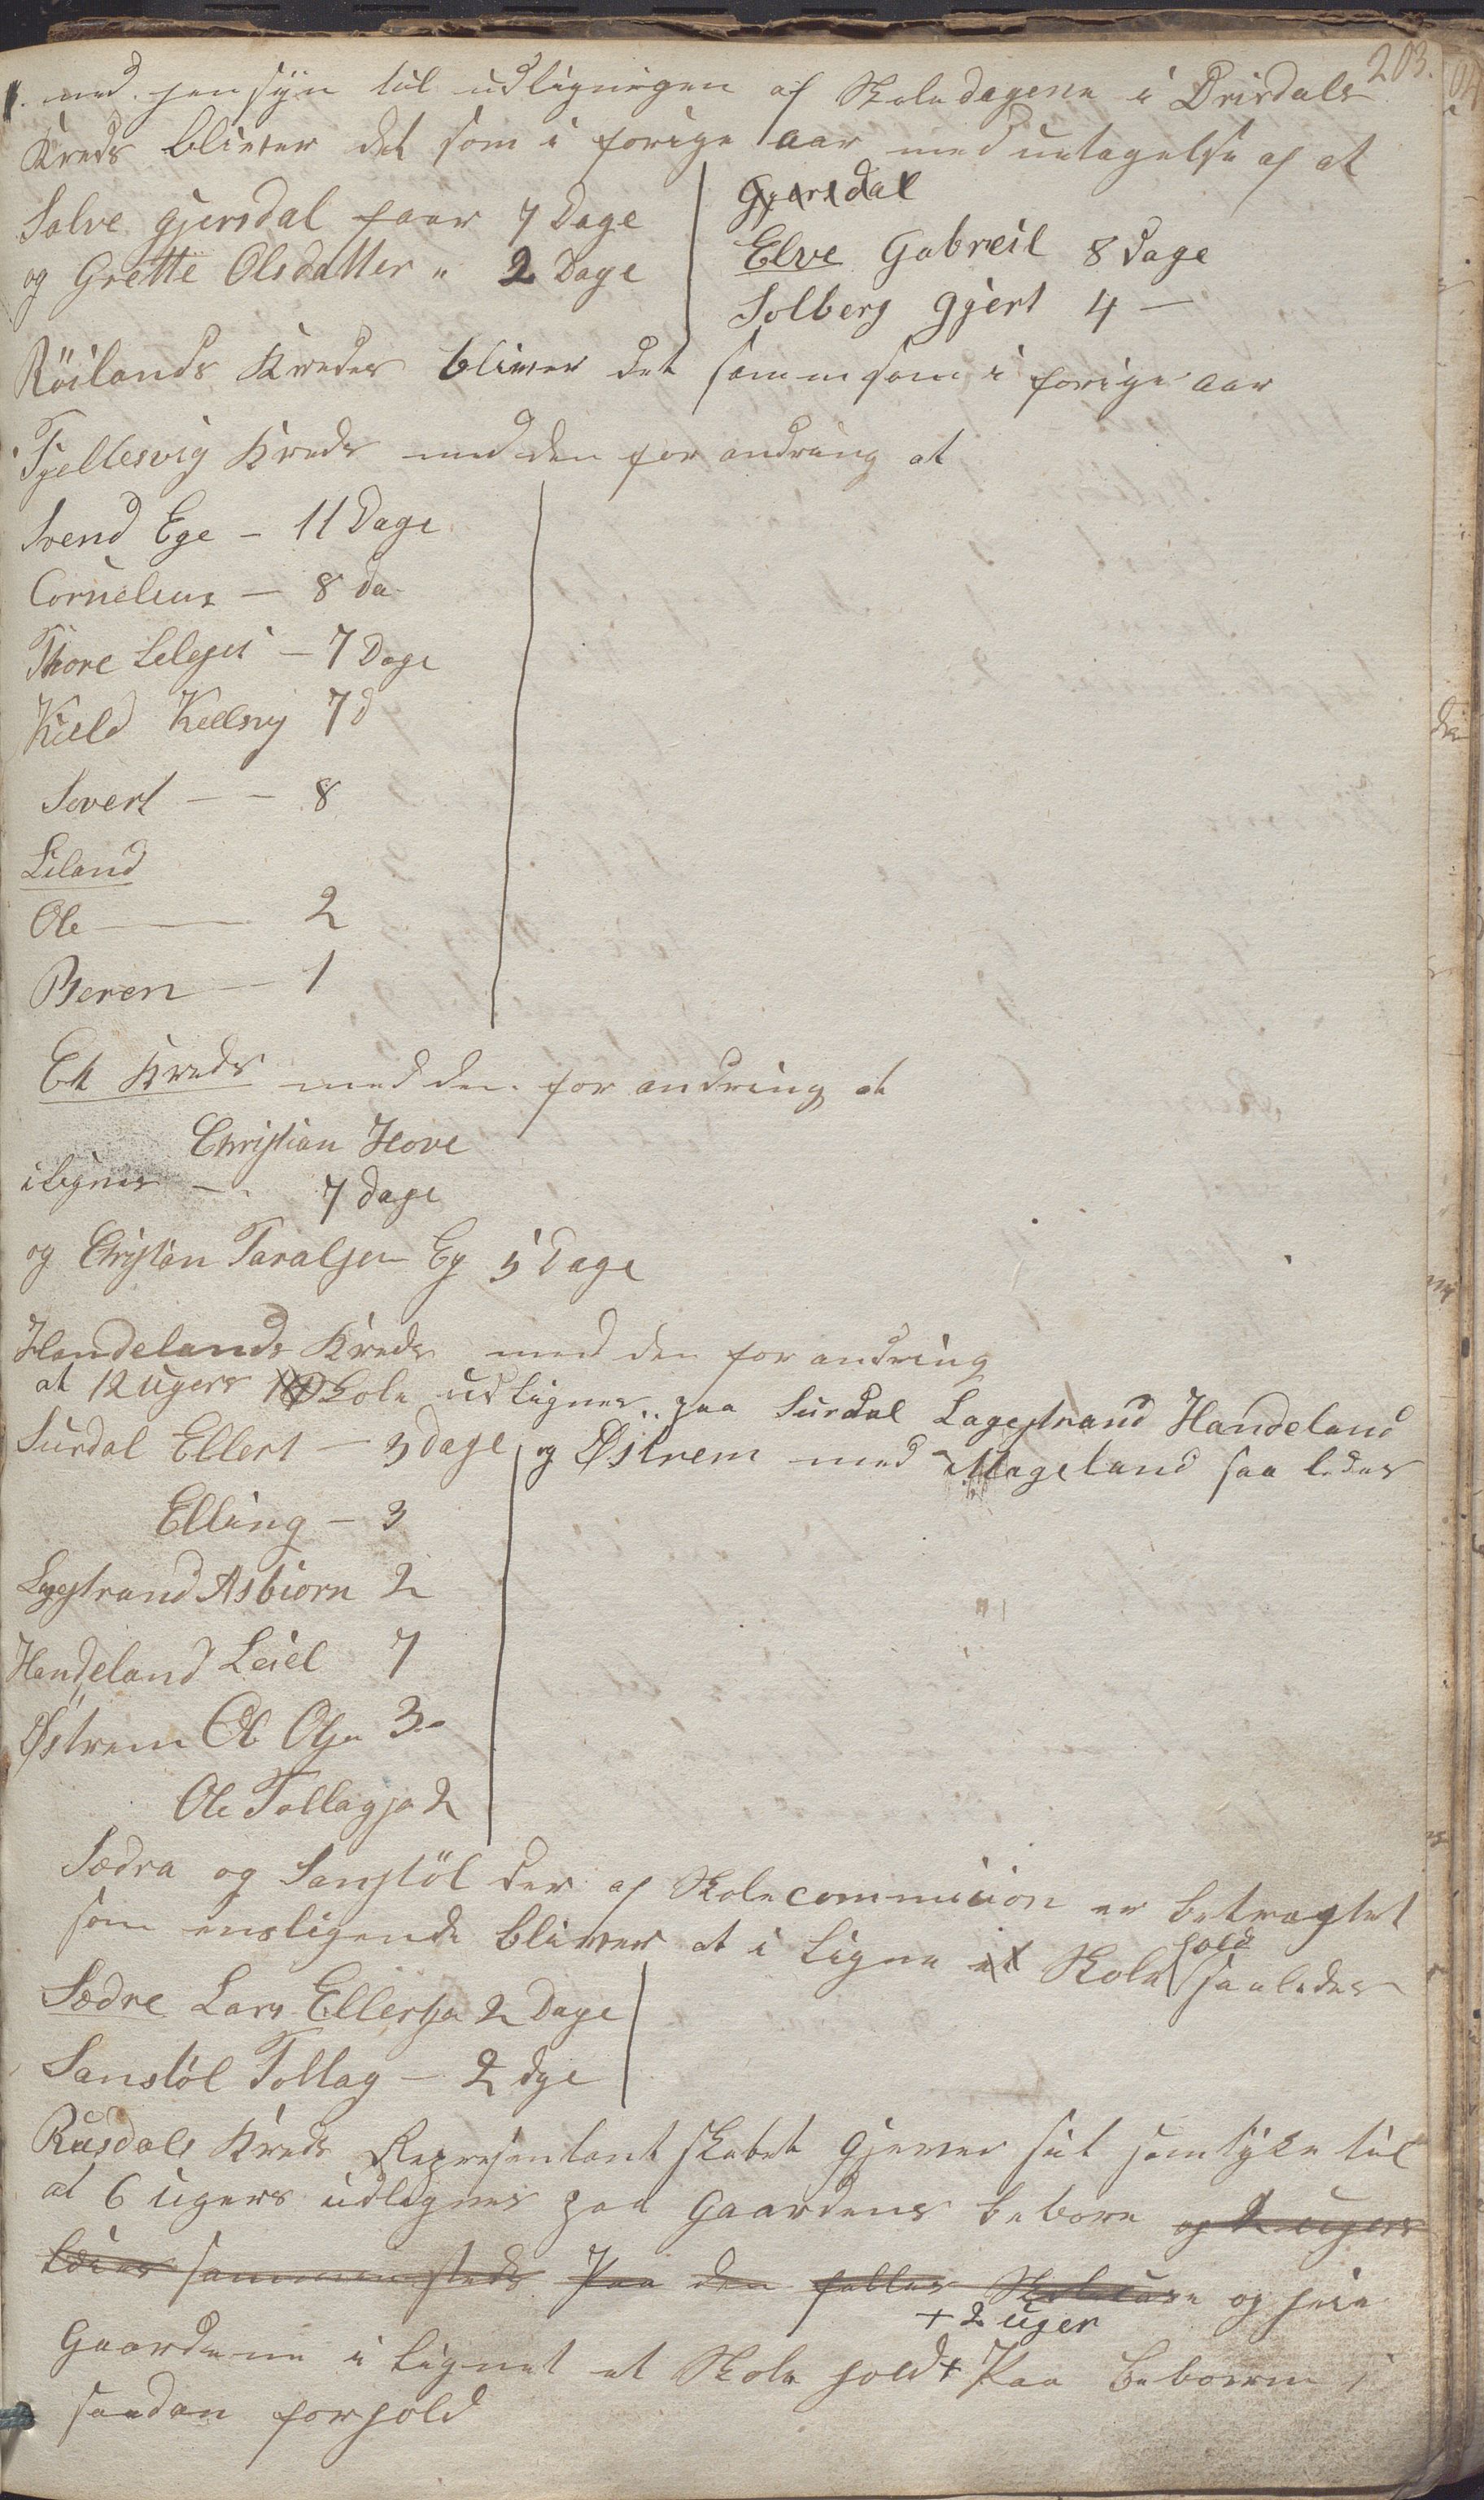 203.
med hensÿn til udligningen af Skoledagene i Drivdals
Kreds bliver det som i forige aar med untagelse af at
Salve gjersdal faar 7 Dage
og Grette Olsdatter " 2 Dage
Gjersdal
Elve Gabreil 8 Dage
Solberg gjert 4 —
Röilands Kredes bliver det samm som i forige aar
Tjellesvig Kreds med den forandring at
Svend Ege – 11 Dage
Cornelius – 8 da
Thore – 7 Dage
Kield 7 d
Sivert – – 8
Liland
Ole — 2
Beren – 1
Ek Kreds med den forandring at
Christian Hove
ilignes – 7 dage
og Christian Taralsen Eg 5 Dage
Handelands Kreds med den forandring
at 12 ugers Skole udlignes paa Surdal Lagestrand Handeland
og Østrem med Mageland saa ledes
Surdal Ellert – 3 dage
Elling – 3
Lagestrand Asbiorn 2
Handeland Leiel 7
Østrem Ole Olsen 3
Ole Tallagsen 2
Sædra og Sanstöl der af Skolecommicion er betragtet
som ensligende bliver at i ligne et Skole hold saaledes
Sædre Lars Ellertsen 2 Dage
Sanstöl Tollag – 2 dge
Rusdals Kreds Representantskabet gjever sit samtÿke til
at 6 ugers udlignes paa Gaardens beboere og 2 ugers
sammensteds Paa den falles og hele
Gaardene i lignet et Skole hold + Paa beboerne i
+ 2 uger
saadan forhold